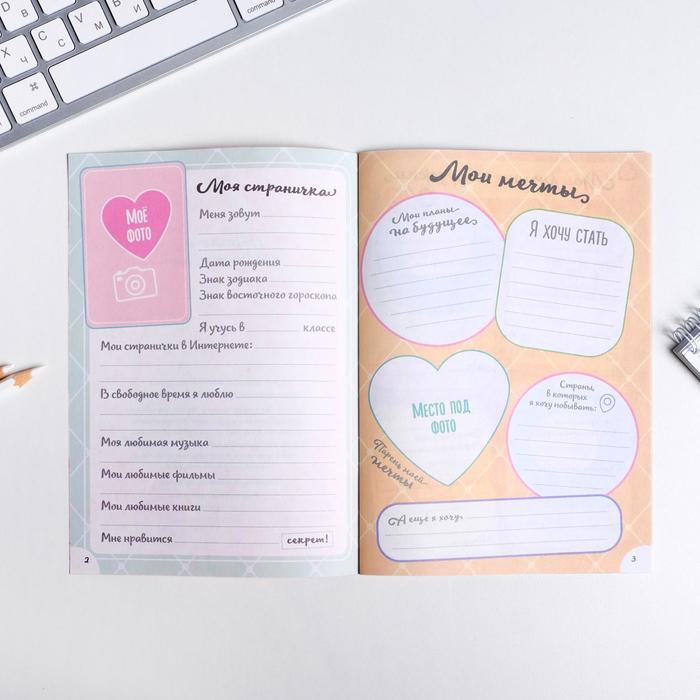 command
command
Моя страничка
Моё
фото
Меня зовут
Дата рождения
Знак зодиака
Знак восточного гороскопа
Я учусь в классе
Мои странички в Интернете:
В свободное время я люблю
Моя любимая музыка
Мои любимые фильмы
Мои любимые книги
Мне нравится секрет!
2
Мои мечты
Мои планы
на будущее
Я хочу стать
Место под
фото
Парень моей
мечты
Страны,
в которых
я хочу побывать:
А еще я хочу
3